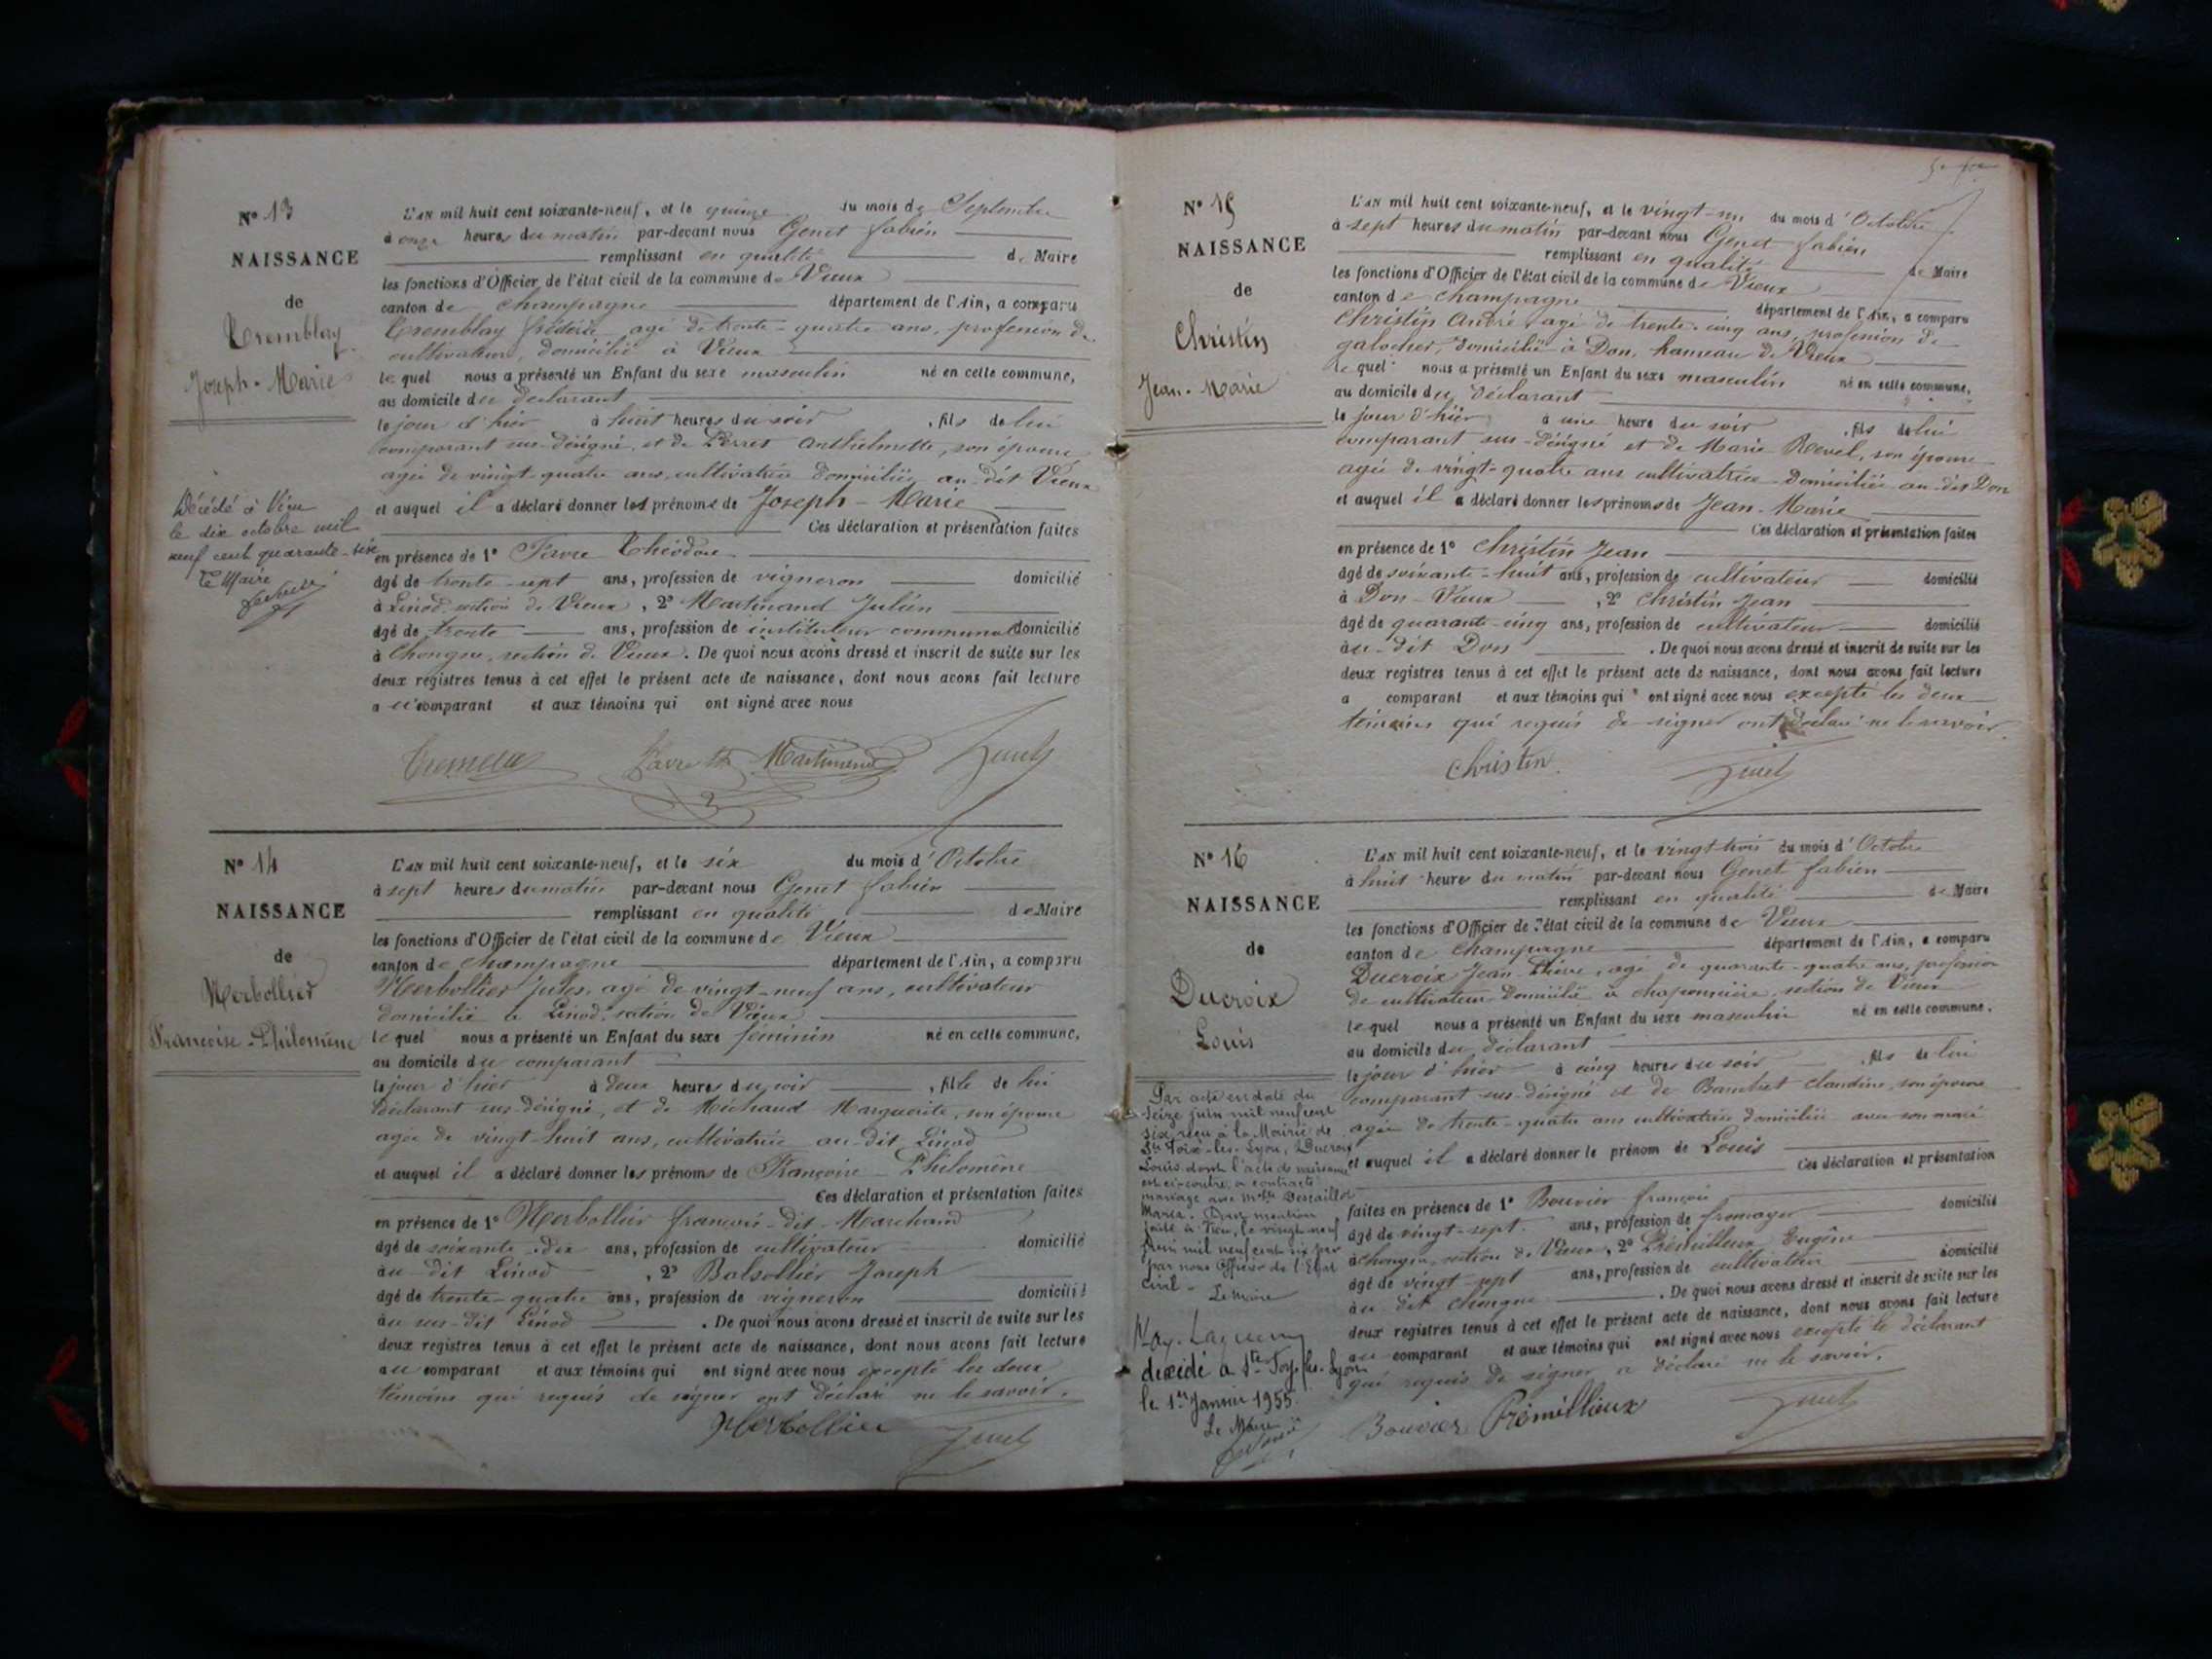 N° 13
NAISSANCE
de
Tremblay
Joseph-Marie
Décédé à Vieu
le dix octobre mil
neuf cent quarante-six
Le Maire
L'AN mil huit cent soixante-neuf, et le quinze du mois de Septembre
à onze heures du matin par-devant nous Genet fabien
remplissant en qualité de Maire
les fonctions d'Officier de l'état civil de la commune de Vieux
canton de Champagne département de l'Ain, a comparu
Tremblay frédéric, agé de trente-quatre ans, profession de
cultivateur, domicilié à Vieux
lequel nous a présenté un Enfant du sexe masculin né en cette commune,
au domicile du déclarant
le jour d'hier à huit heures du soir, fils de lui
comparant sus-désigné, et de Perret Anthelmette, son épouse
agée de vingt-quatre ans, cultivatrice domiciliée au-dit Vieux
et auquel il a déclaré donner les prénoms de Joseph-Marie
Ces déclaration et présentation faites
en présence de 1° Favre Théodore
âgé de trente-sept ans, profession de vigneron domicilié
à Linod, section de Vieux, 2° Martinand Julien
âgé de trente ans, profession de instituteur communal domicilié
à Chongne, section de Vieux. De quoi nous avons dressé et inscrit de suite sur les
deux registres tenus à cet effet le présent acte de naissance, dont nous avons fait lecture
au comparant et aux témoins qui ont signé avec nous
Favre th Martinand Genet
N° 14
NAISSANCE
de
Merbollier
Francoise-Philomène
L'AN mil huit cent soixante-neuf, et le six du mois d'Octobre
à sept heures du matin par-devant nous Genet fabien
remplissant en qualité de Maire
les fonctions d'Officier de l'état civil de la commune de Vieux
canton de Champagne département de l'Ain, a comparu
Merbollier Jules, agé de vingt-neuf ans, cultivateur
domicilié à Linod, section de Vieux
lequel nous a présenté un Enfant du sexe féminin né en cette commune,
au domicile du comparant
le jour d'hier à deux heures du soir, fille de lui
déclarant sus-désigné, et de Michaud Marguerite, son épouse
agée de vingt-huit ans, cultivatrice au-dit Linod
et auquel il a déclaré donner les prénoms de Françoise Philomène
Ces déclaration et présentation faites
en présence de 1° Merbollier françois-dit-Marchand
âgé de soixante-dix ans, profession de cultivateur domicilié
au-dit Linod, 2° Bolsollier Joseph
âgé de trente-quatre ans, profession de vigneron domicilié
au sus-dit Linod. De quoi nous avons dressé et inscrit de suite sur les
deux registres tenus à cet effet le présent acte de naissance, dont nous avons fait lecture
au comparant et aux témoins qui ont signé avec nous excepté les deux
témoins qui requis de signer ont déclaré ne le savoir.
Merbollier Genet
N° 15
NAISSANCE
de
Christin
Jean-Marie
L'AN mil huit cent soixante-neuf, et le vingt-un du mois d'Octobre
à sept heures du matin par-devant nous Genet fabien
remplissant en qualité de Maire
les fonctions d'Officier de l'état civil de la commune de Vieux
canton de Champagne département de l'Ain, a comparu
Christin André, agé de trente-cinq ans, profession de
galocher, domicilié à Don, hameau de Vieux
lequel nous a présenté un Enfant du sexe masculin né en cette commune,
au domicile du déclarant
le jour d'hier à une heure du soir, fils de lui
comparant sus-désigné et de Marie Revel, son épouse
agée de vingt-quatre ans cultivatrice domiciliée au-dit Don
et auquel il a déclaré donner les prénoms de Jean-Marie
Ces déclaration et présentation faites
en présence de 1° Christin Jean
âgé de soixante-huit ans, profession de cultivateur domicilié
à Don-Vieux, 2° Christin Jean
âgé de quarante-cinq ans, profession de cultivateur domicilié
au-dit Don. De quoi nous avons dressé et inscrit de suite sur les
deux registres tenus à cet effet le présent acte de naissance, dont nous avons fait lecture
a comparant et aux témoins qui ont signé avec nous excepté les deux
témoins qui requis de signer ont déclaré ne le savoir.
Christin Genet
N° 16
NAISSANCE
de
Ducroix
Louis
Par acte en date du
seize juin mil neuf cent
six, reçu à la Mairie de
Ste Foix-les-Lyon, Ducroix
Louis dont l'acte de naissance
est ci-contre, a contracté
mariage avec
Maria. Dont mention
faite à Vieu, le vingt-neuf
juin mil neuf cent six par
par nous Officier de l'Etat
Civil.
Le Maire
décédé à Ste Foy-les-Lyon
le 1er Janvier 1955
Le Maire
L'AN mil huit cent soixante-neuf, et le vingt trois du mois d'Octobre
à huit heures du matin par-devant nous Genet fabien
remplissant en qualité de Maire
les fonctions d'Officier de l'état civil de la commune de Vieux
canton de Champagne département de l'Ain, a comparu
Ducroix Jean-Pierre, agé de quarante-quatre ans, profession
de cultivateur domicilié à Chaponnière, section de Vieux
lequel nous a présenté un Enfant du sexe masculin né en cette commune,
au domicile du déclarant
le jour d'hier à cinq heures du soir, fils de lui
comparant sus-désigné et de Claudine, son épouse
agée de trente-quatre ans cultivatrice domiciliée avec son mari
et auquel il a déclaré donner le prénom de Louis
Ces déclaration et présentation
faites en présence de 1° Bouvier françois
âgé de vingt-sept ans, profession de fromager domicilié
à Chongne, section de Vieux, 2° Prémillieux Eugène
âgé de vingt-sept ans, profession de cultivateur domicilié
au dit Chongne. De quoi nous avons dressé et inscrit de suite sur les
deux registres tenus à cet effet le présent acte de naissance, dont nous avons fait lecture
au comparant et aux témoins qui ont signé avec nous excepté le déclarant
qui requis de signer a déclaré ne le savoir.
Bouvier Prémillieux Genet